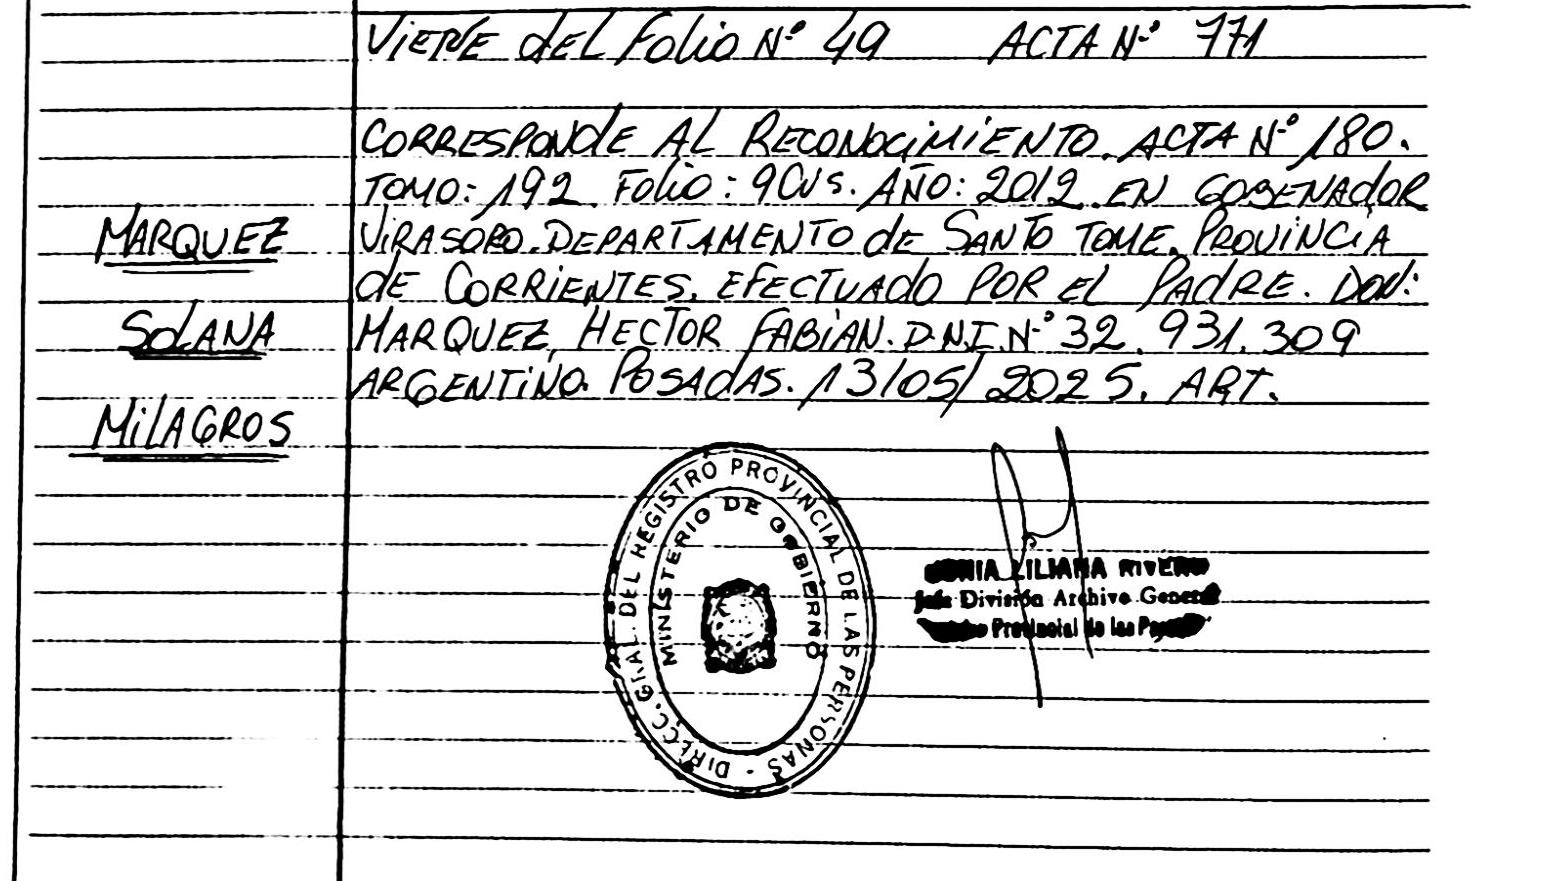 VIENE del Folio Nº 49 ACTA Nº 771
CORRESPONDE AL RECONOCIMIENTO. ACTA Nº 180.
TOMO: 192. Folio: 90VS. AÑO: 2012. EN GOBENADOR
VIRASORO. DEPARTAMENTO de SANTO TOME. PROVINCIA
de CORRIENTES. EFECTUADO POR EL PADRE. DON:
MARQUEZ, HECTOR FABIAN. D.N.I. Nº 32.931.309
ARGENTINO. POSADAS. 13/05/2025. ART.
MARQUEZ
SOLANA
MILAGROS
DIRECC. GRAL. DEL REGISTRO PROVINCIAL DE LAS PERSONAS -
MINISTERIO DE GOBIERNO
LILIANA RIVERO
Jefe División Archivo General
Provincial de las